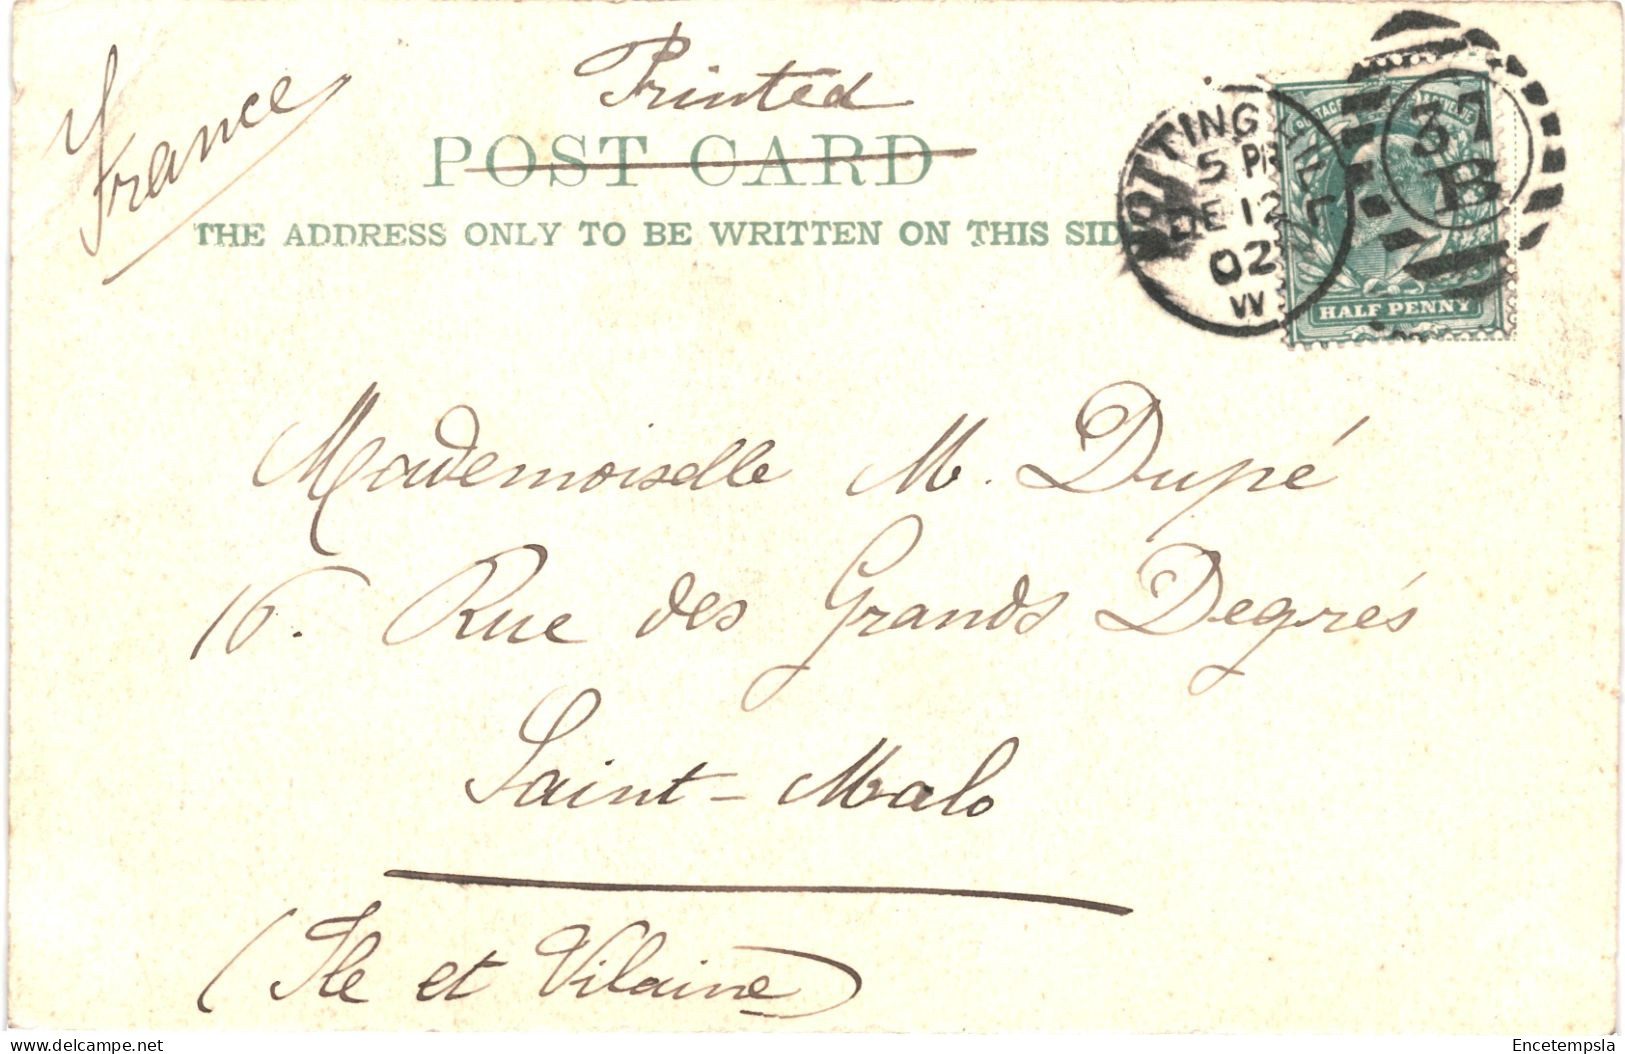 France
Printed
POST CARD
THE ADDRESS ONLY TO BE WRITTEN ON THIS SID
NOTTING HILL
5 PM
DE 12
02
W
37
B
POSTAGE REVENUE
HALF PENNY
Mademoiselle M. Dupé
16. Rue des Grands Degrés
Saint-Malo
(Ile et Vilaine)
Encetempsla
delcampe.net